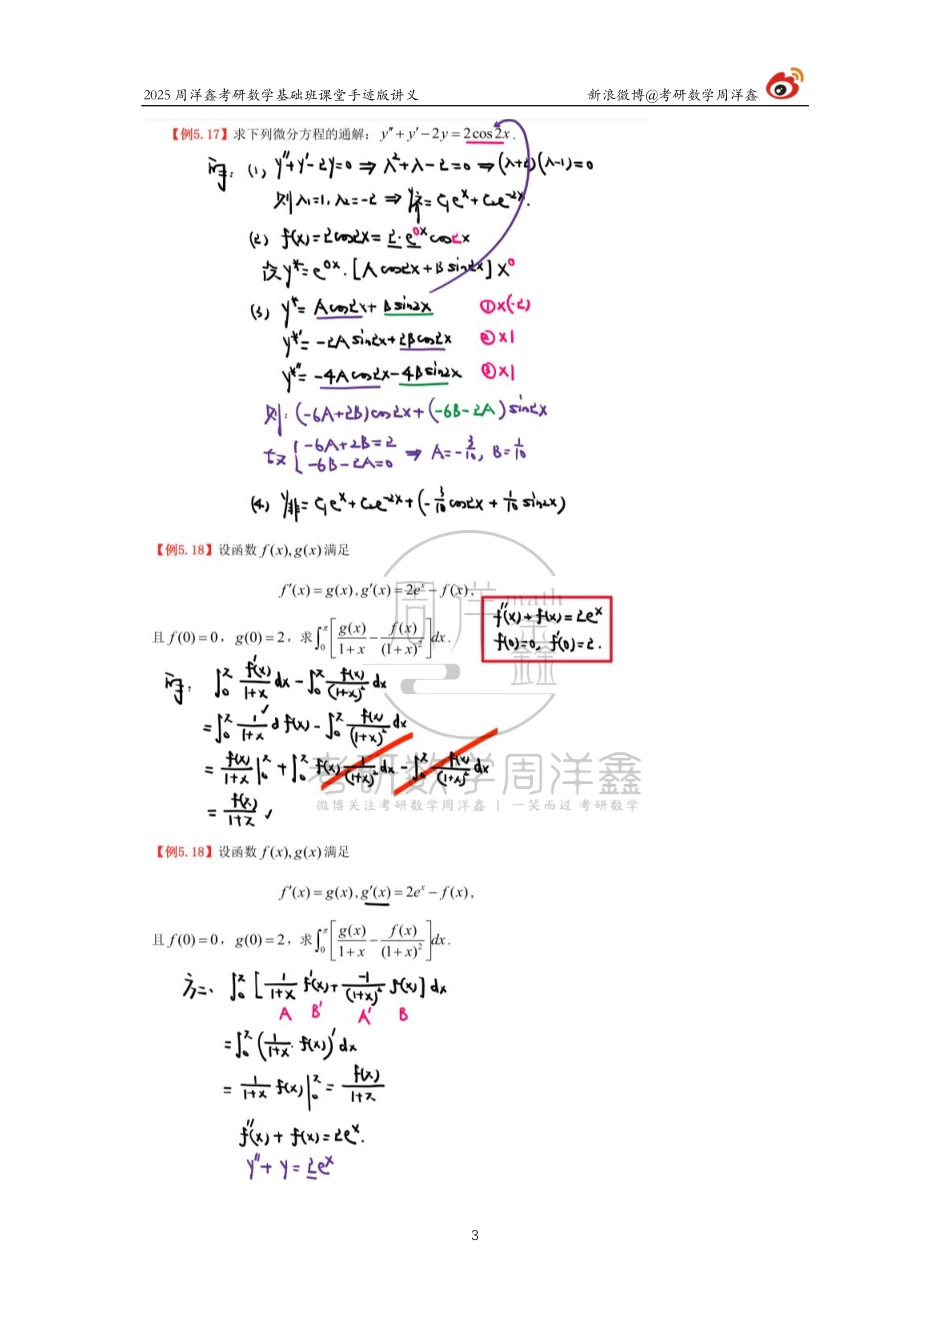 2025 周洋鑫考研数学基础班课堂手迹版讲义 新浪微博@考研数学周洋鑫
【例5.17】求下列微分方程的通解：y″+y′−2y=2cos2x.
解：(1) y″+y′−2y=0 ⇒ λ²+λ−2=0 ⇒ (λ+2)(λ−1)=0
则λ₁=1, λ₂=−2 ⇒ y齐=C₁eˣ+C₂e⁻²ˣ.
(2) f(x)=2cos2x=2·e⁰ˣcos2x
设y*=e⁰ˣ·[Acos2x+Bsin2x]x⁰
(3) y*=Acos2x+Bsin2x ①×(−2)
y*′=−2Asin2x+2Bcos2x ②×1
y*″=−4Acos2x−4Bsin2x ③×1
则：(−6A+2B)cos2x+(−6B−2A)sin2x
故{−6A+2B=2
−6B−2A=0 ⇒ A=−3/10, B=1/10
(4) y非=C₁eˣ+C₂e⁻²ˣ+(−3/10 cos2x+1/10 sin2x)
【例5.18】设函数 f(x),g(x)满足
f′(x)=g(x),g′(x)=2eˣ−f(x),
f″(x)+f(x)=2eˣ
f(0)=0, f′(0)=2.
且 f(0)=0，g(0)=2，求∫₀^π[g(x)/(1+x)−f(x)/(1+x)²]dx.
解：∫₀^π f′(x)/(1+x) dx−∫₀^π f(x)/(1+x)² dx
=∫₀^π 1/(1+x) d f(x)−∫₀^π f(x)/(1+x)² dx
=f(x)/(1+x)|₀^π+∫₀^π f(x)·1/(1+x)² dx−∫₀^π f(x)/(1+x)² dx
=f(π)/(1+π) ✓
周洋鑫
math
考研数学周洋鑫
微博关注考研数学周洋鑫 | 一笑而过 考研数学
【例5.18】设函数 f(x),g(x)满足
f′(x)=g(x),g′(x)=2eˣ−f(x),
且 f(0)=0，g(0)=2，求∫₀^π[g(x)/(1+x)−f(x)/(1+x)²]dx.
方二、∫₀^π[1/(1+x) f′(x)+−1/(1+x)² f(x)]dx
A B′ A′ B
=∫₀^π(1/(1+x)·f(x))′dx
=1/(1+x) f(x)|₀^π=f(π)/(1+π)
f″(x)+f(x)=2eˣ.
y″+y=2eˣ
3